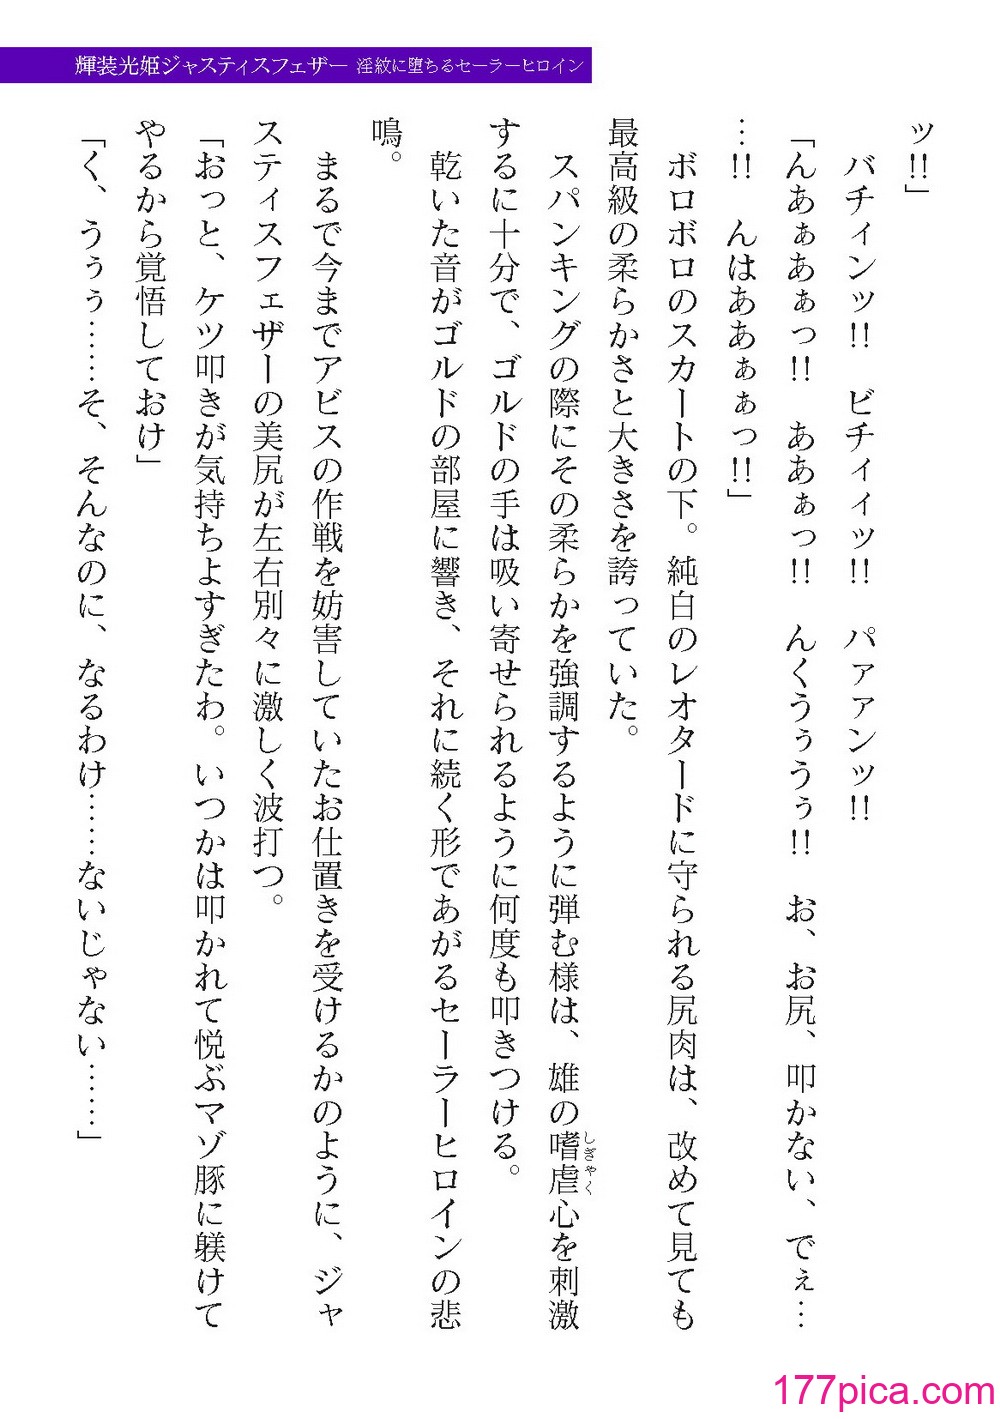 輝装光姫ジャスティスフェザー 淫紋に堕ちるセーラーヒロイン
ッ!!」
バチィンッ!! ビチィィッ!! パァァンッ!!
「んあぁあぁっ!! ああぁっ!! んくうぅうぅ!! お、お尻、叩かない、でぇ…
…!! んはああぁぁっ!!」
ボロボロのスカートの下。純白のレオタードに守られる尻肉は、改めて見ても
最高級の柔らかさと大きさを誇っていた。
スパンキングの際にその柔らかを強調するように弾む様は、雄の嗜虐心を刺激
しぎゃく
するに十分で、ゴルドの手は吸い寄せられるように何度も叩きつける。
乾いた音がゴルドの部屋に響き、それに続く形であがるセーラーヒロインの悲
鳴。
まるで今までアビスの作戦を妨害していたお仕置きを受けるかのように、ジャ
スティスフェザーの美尻が左右別々に激しく波打つ。
「おっと、ケツ叩きが気持ちよすぎたわ。いつかは叩かれて悦ぶマゾ豚に躾けて
やるから覚悟しておけ」
「く、うぅぅ……そ、そんなのに、なるわけ……ないじゃない……」
177pica.com